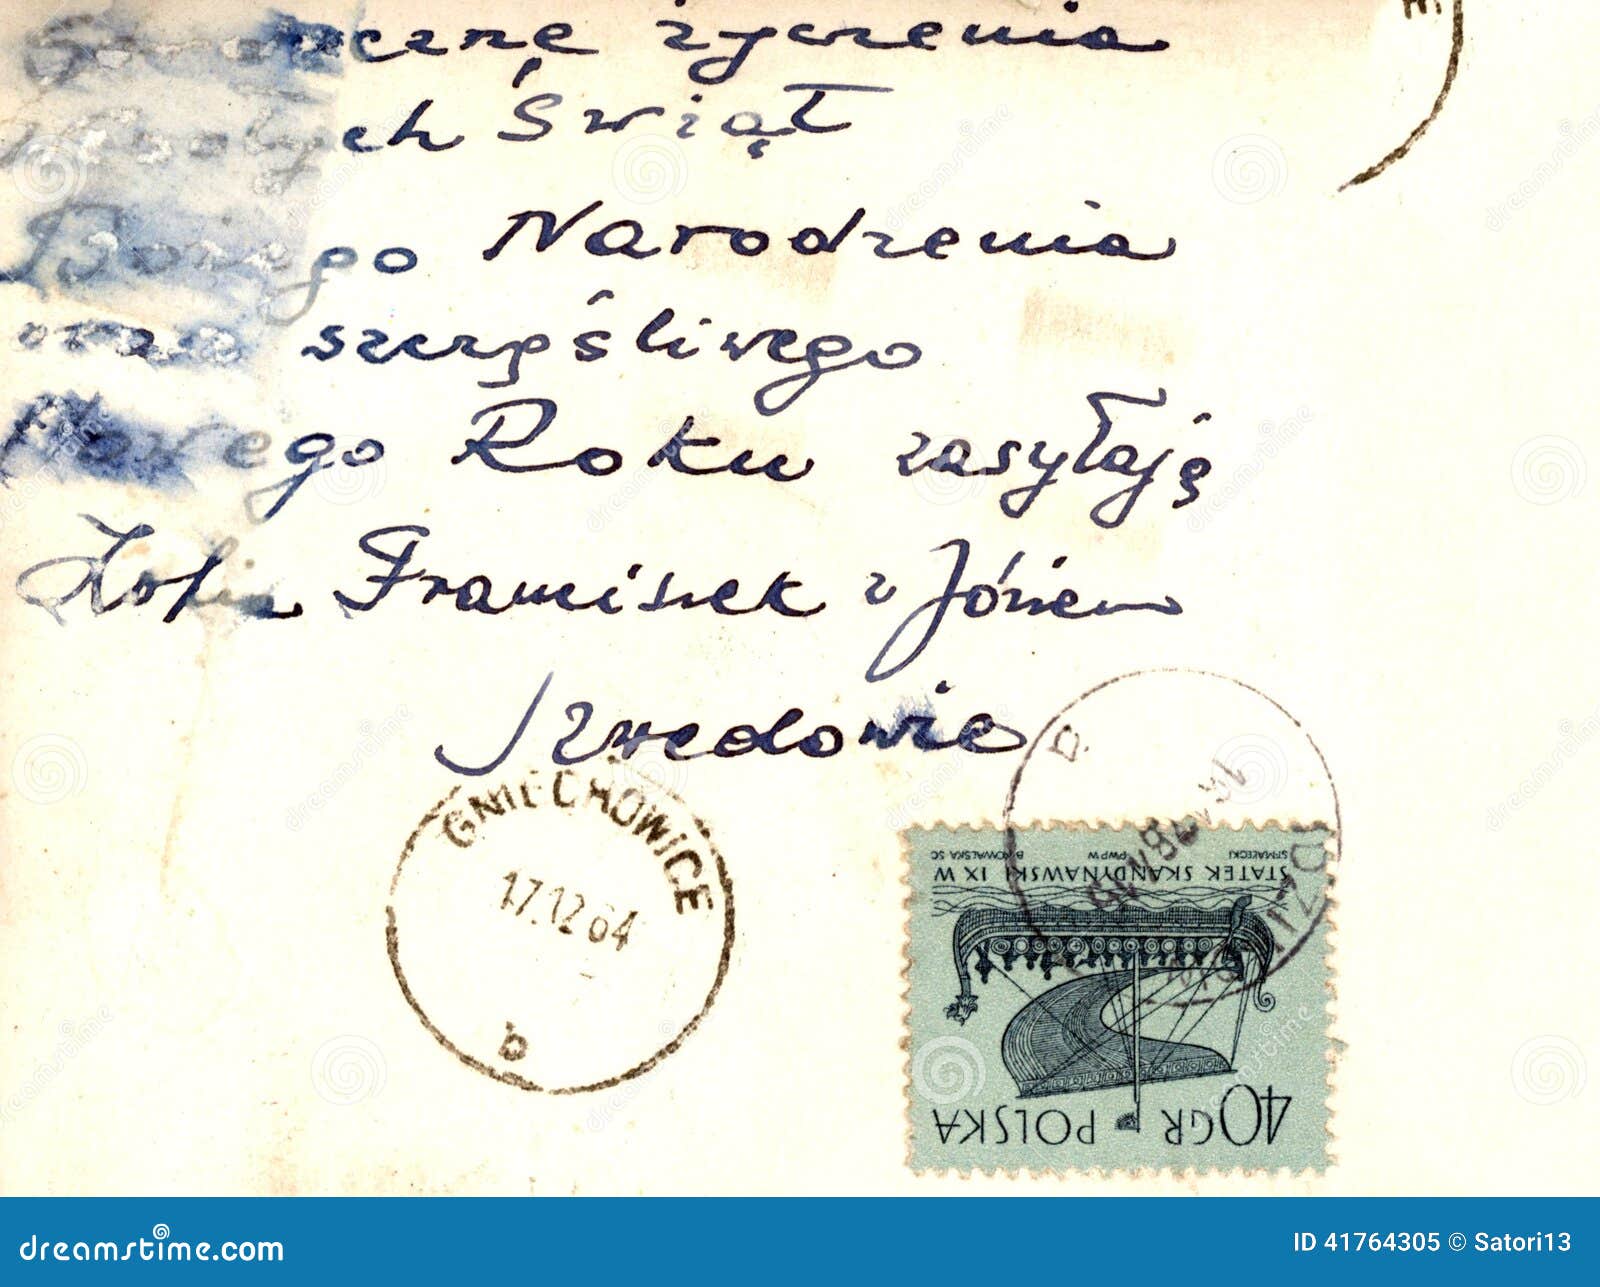 Serdeczne życzenia
Wesołych Świąt
Bożego Narodzenia
oraz szczęśliwego
Nowego Roku zasyłają
Zofia Franciszek z Józiem
Szwedowie
GNIECHOWICE
17.12 64
b
STATEK SKANDYNAWSKI IX W
S.MAŁECKI PWPW B.KOWALSKA SC
40 GR POLSKA
dreamstime.com
ID 41764305 © Satori13